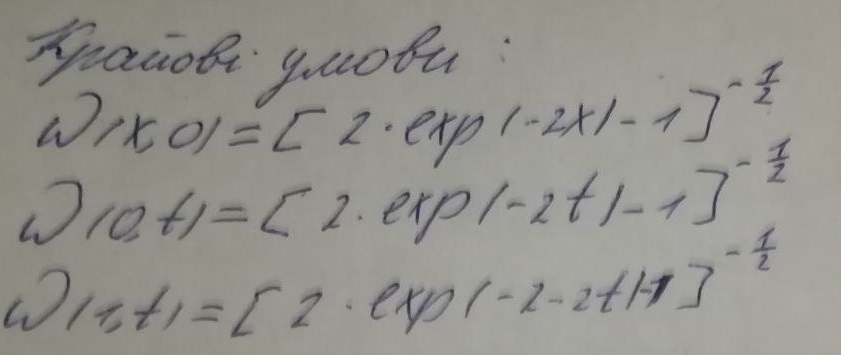 Крайові умови:
W(x,0)=[2·exp(-2x)-1]^{-\frac{1}{2}}
W(0,t)=[2·exp(-2t)-1]^{-\frac{1}{2}}
W(1,t)=[2·exp(-2-2t)-1]^{-\frac{1}{2}}